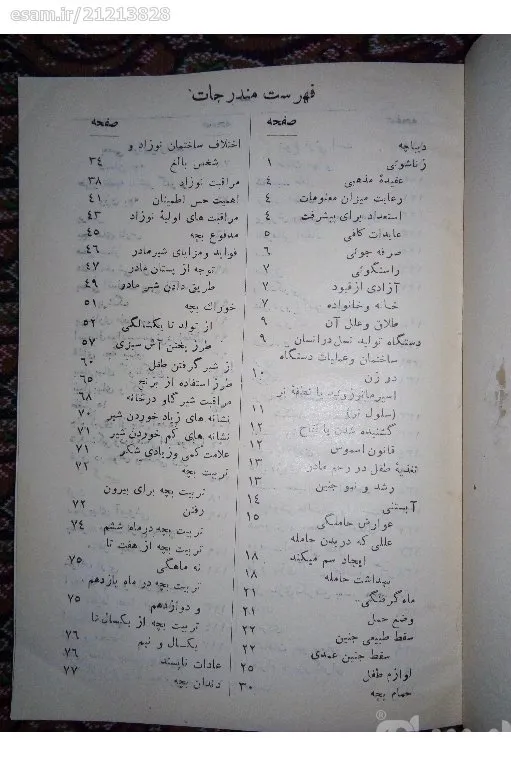 esam.ir/21213828
فهرست مندرجات
صفحه
دیباچه
زناشوئی ۱
عقیدهٔ مذهبی ۴
رعایت میزان معلومات ۴
استعداد برای پیشرفت ۴
عایدات کافی ۵
صرفه جوئی ۶
راستگوئی ۷
آزادی از قیود ۷
خانه و خانواده ۷
طلاق و علل آن ۹
دستگاه تولید نسل در انسان ۹
ساختمان و عملیات دستگاه
در زن ۱۰
اسپرماتوزوئید یا نطفهٔ نر
(سلول نر) ۱۱
گشنیده شدن یا لقاح ۱۲
قانون اسموس ۱۲
تغذیهٔ طفل در رحم مادر ۱۳
رشد و نمو جنین ۱۳
آبستنی ۱۴
عوارض حاملگی ۱۵
عللی که در بدن حامله
ایجاد سم میکند ۱۸
بهداشت حامله ۱۸
ماه گرفتگی ۲۱
وضع حمل ۲۱
سقط طبیعی جنین ۲۲
سقط جنین عمدی ۲۲
لوازم طفل ۲۵
حمام بچه ۳۰
صفحه
اختلاف ساختمان نوزاد و
شخص بالغ ۳۴
مراقبت نوزاد ۳۸
اهمیت حس اطمینان ۴۱
مراقبت های اولیهٔ نوزاد ۴۳
مدفوع بچه ۴۵
فواید و مزایای شیر مادر ۴۶
توجه از پستان مادر ۴۷
طریق دادن شیر مادر ۴۹
خوراک بچه ۵۱
از تولد تا یکسالگی ۵۲
طرز پختن آش سبزی ۵۷
از شیر گرفتن طفل ۶۰
طرز استفاده از برنج ۶۵
مراقبت شیر گاو در خانه ۶۸
نشانه های زیاد خوردن شیر ۷۰
نشانه های کم خوردن شیر ۷۱
علامت کمی و زیادی شکر ۷۱
تربیت بچه ۷۲
تربیت بچه برای بیرون
رفتن ۷۲
تربیت بچه در ماه ششم ۷۴
تربیت بچه از هفت تا
نه ماهگی ۷۵
تربیت بچه در ماه یازدهم
و دوازدهم ۷۵
تربیت بچه از یکسال تا
یکسال و نیم ۷۶
عادات ناپسند ۷۶
دندان بچه ۷۷